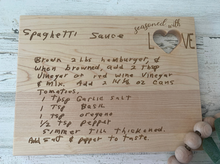 seasoned with
LOVE
Spaghetti Sauce
Brown 2 lbs hamburger, &
when browned, add 2 Tbsp
Vinegar or red wine Vinegar
& mix. Add 2 14½ oz cans
Tomatoes.
1 Tbsp Garlic Salt
1 Tsp Basil
1 Tsp oregano
1/2 Tsp pepper
Simmer Till Thickened.
Add Salt & pepper to Taste.